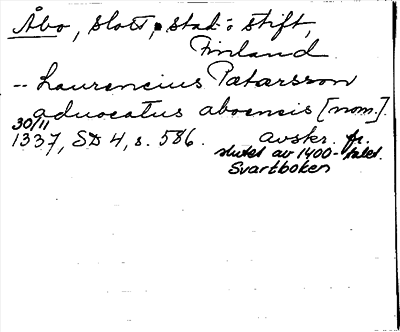 Åbo, slott, stad o stift,
Finland
-- Laurencius Petersson
advocatus aboensis [nom.].
30/11
1337, SD 4, s. 586. avskr. fr.
slutet av 1400-talet.
Svartboken